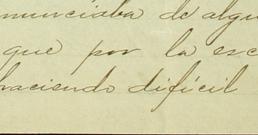 nunciaba de algu
que por la esc
haciendo difícil